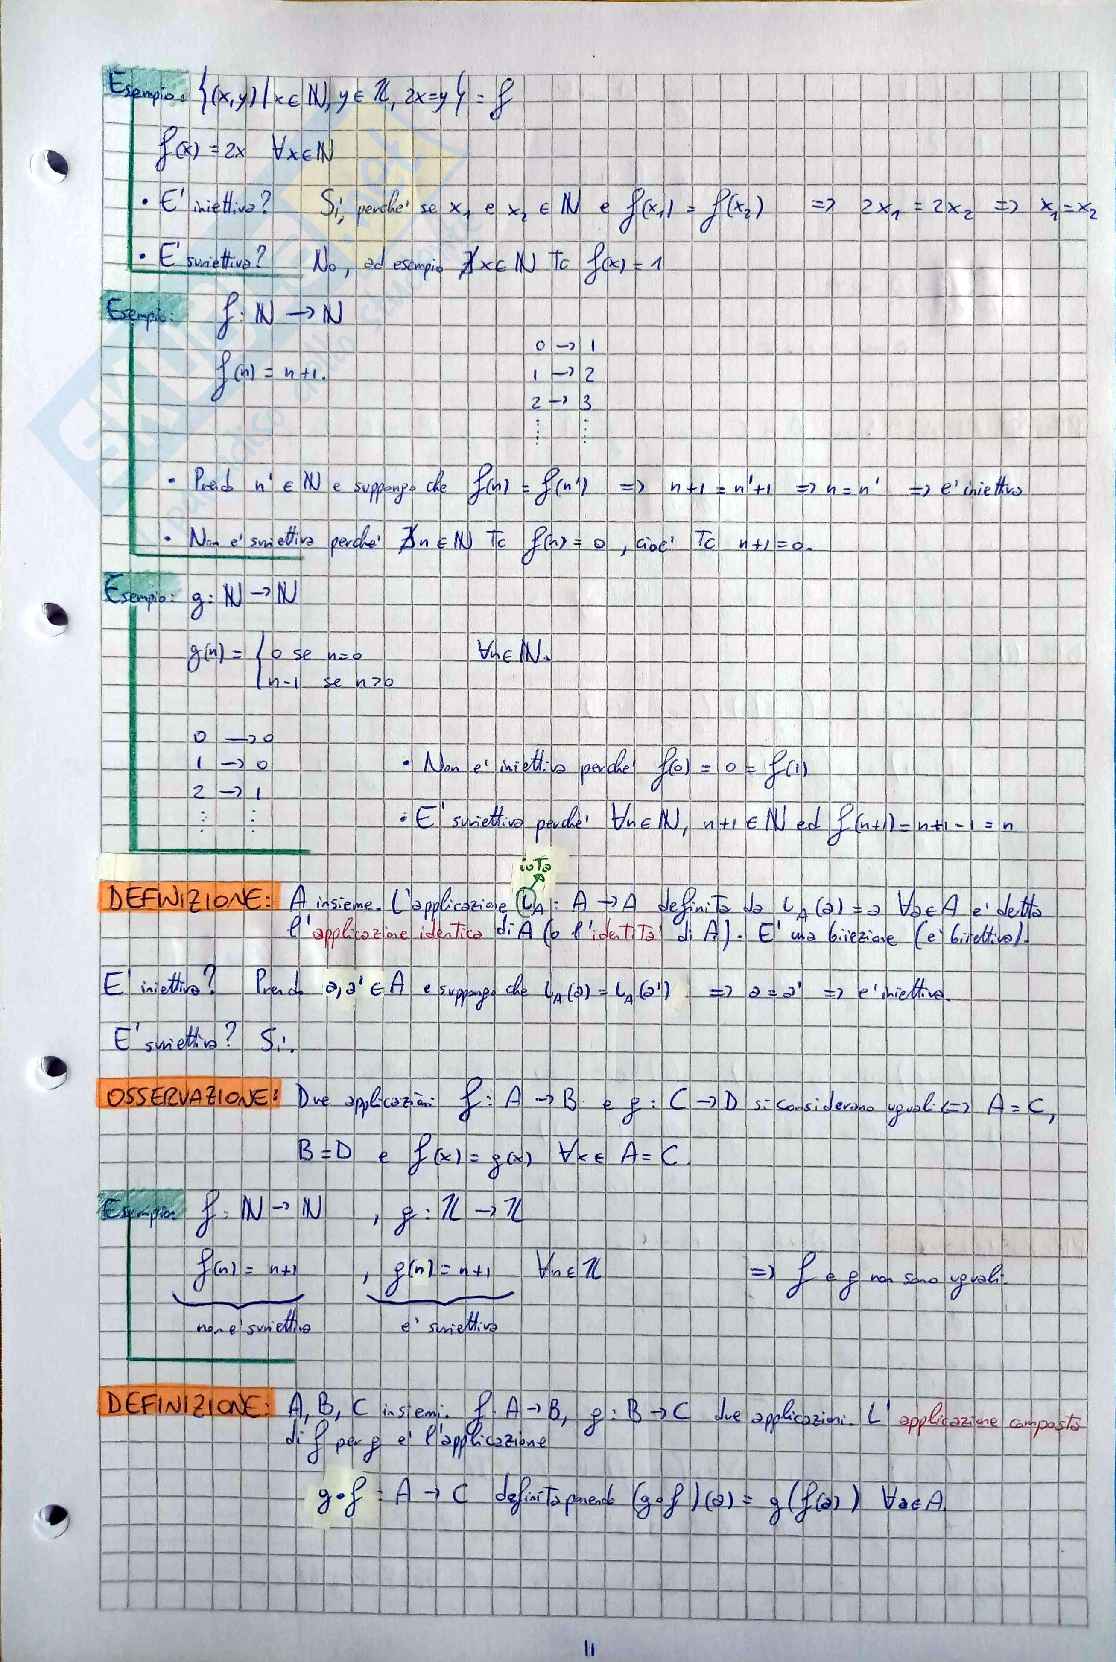 Esempio: {(x,y) | x ∈ ℕ, y ∈ ℤ, 2x=y} = f
f(x) = 2x ∀x∈ℕ
• E' iniettiva? Sì, perché se x₁ e x₂ ∈ ℕ e f(x₁) = f(x₂) => 2x₁ = 2x₂ => x₁=x₂
• E' suriettiva? No, ad esempio ∄x∈ℕ Tc f(x)=1
Esempio: f: ℕ → ℕ
f(n) = n+1.
0 → 1
1 → 2
2 → 3
⋮ ⋮
• Prendo n' ∈ ℕ e suppongo che f(n) = f(n') => n+1 = n'+1 => n=n' => e' iniettiva
• Non e' suriettiva perché ∄n∈ℕ Tc f(n)=0, cioè Tc n+1=0.
Esempio: g: ℕ → ℕ
g(n) = { 0 se n=0 ∀n∈ℕ.
n-1 se n>0
0 → 0
1 → 0 • Non e' iniettiva perché f(0) = 0 = f(1)
2 → 1
⋮ ⋮ • E' suriettiva perché ∀n∈ℕ, n+1∈ℕ ed f(n+1)=n+1-1=n
iota
DEFINIZIONE: A insieme. L'applicazione ι_A: A → A definita da ι_A(a)=a ∀a∈A e' detta
l'applicazione identica di A (o l'identità di A). E' una biiezione (e' biiettiva).
E' iniettiva? Prendo a,a' ∈ A e suppongo che ι_A(a) = ι_A(a') => a=a' => e' iniettiva.
E' suriettiva? Sì.
OSSERVAZIONE: Due applicazioni f: A → B e g: C → D si considerano uguali <=> A=C,
B=D e f(x)=g(x) ∀x∈ A=C.
Esempio: f: ℕ → ℕ , g: ℤ → ℤ
f(n) = n+1 , g(n) = n+1 ∀n∈ℤ => f e g non sono uguali.
non e' suriettiva e' suriettiva
DEFINIZIONE: A, B, C insiemi. f: A → B, g: B → C due applicazioni. L'applicazione composta
di f per g e' l'applicazione
g∘f: A → C definita ponendo (g∘f)(a) = g(f(a)) ∀a∈A.
11